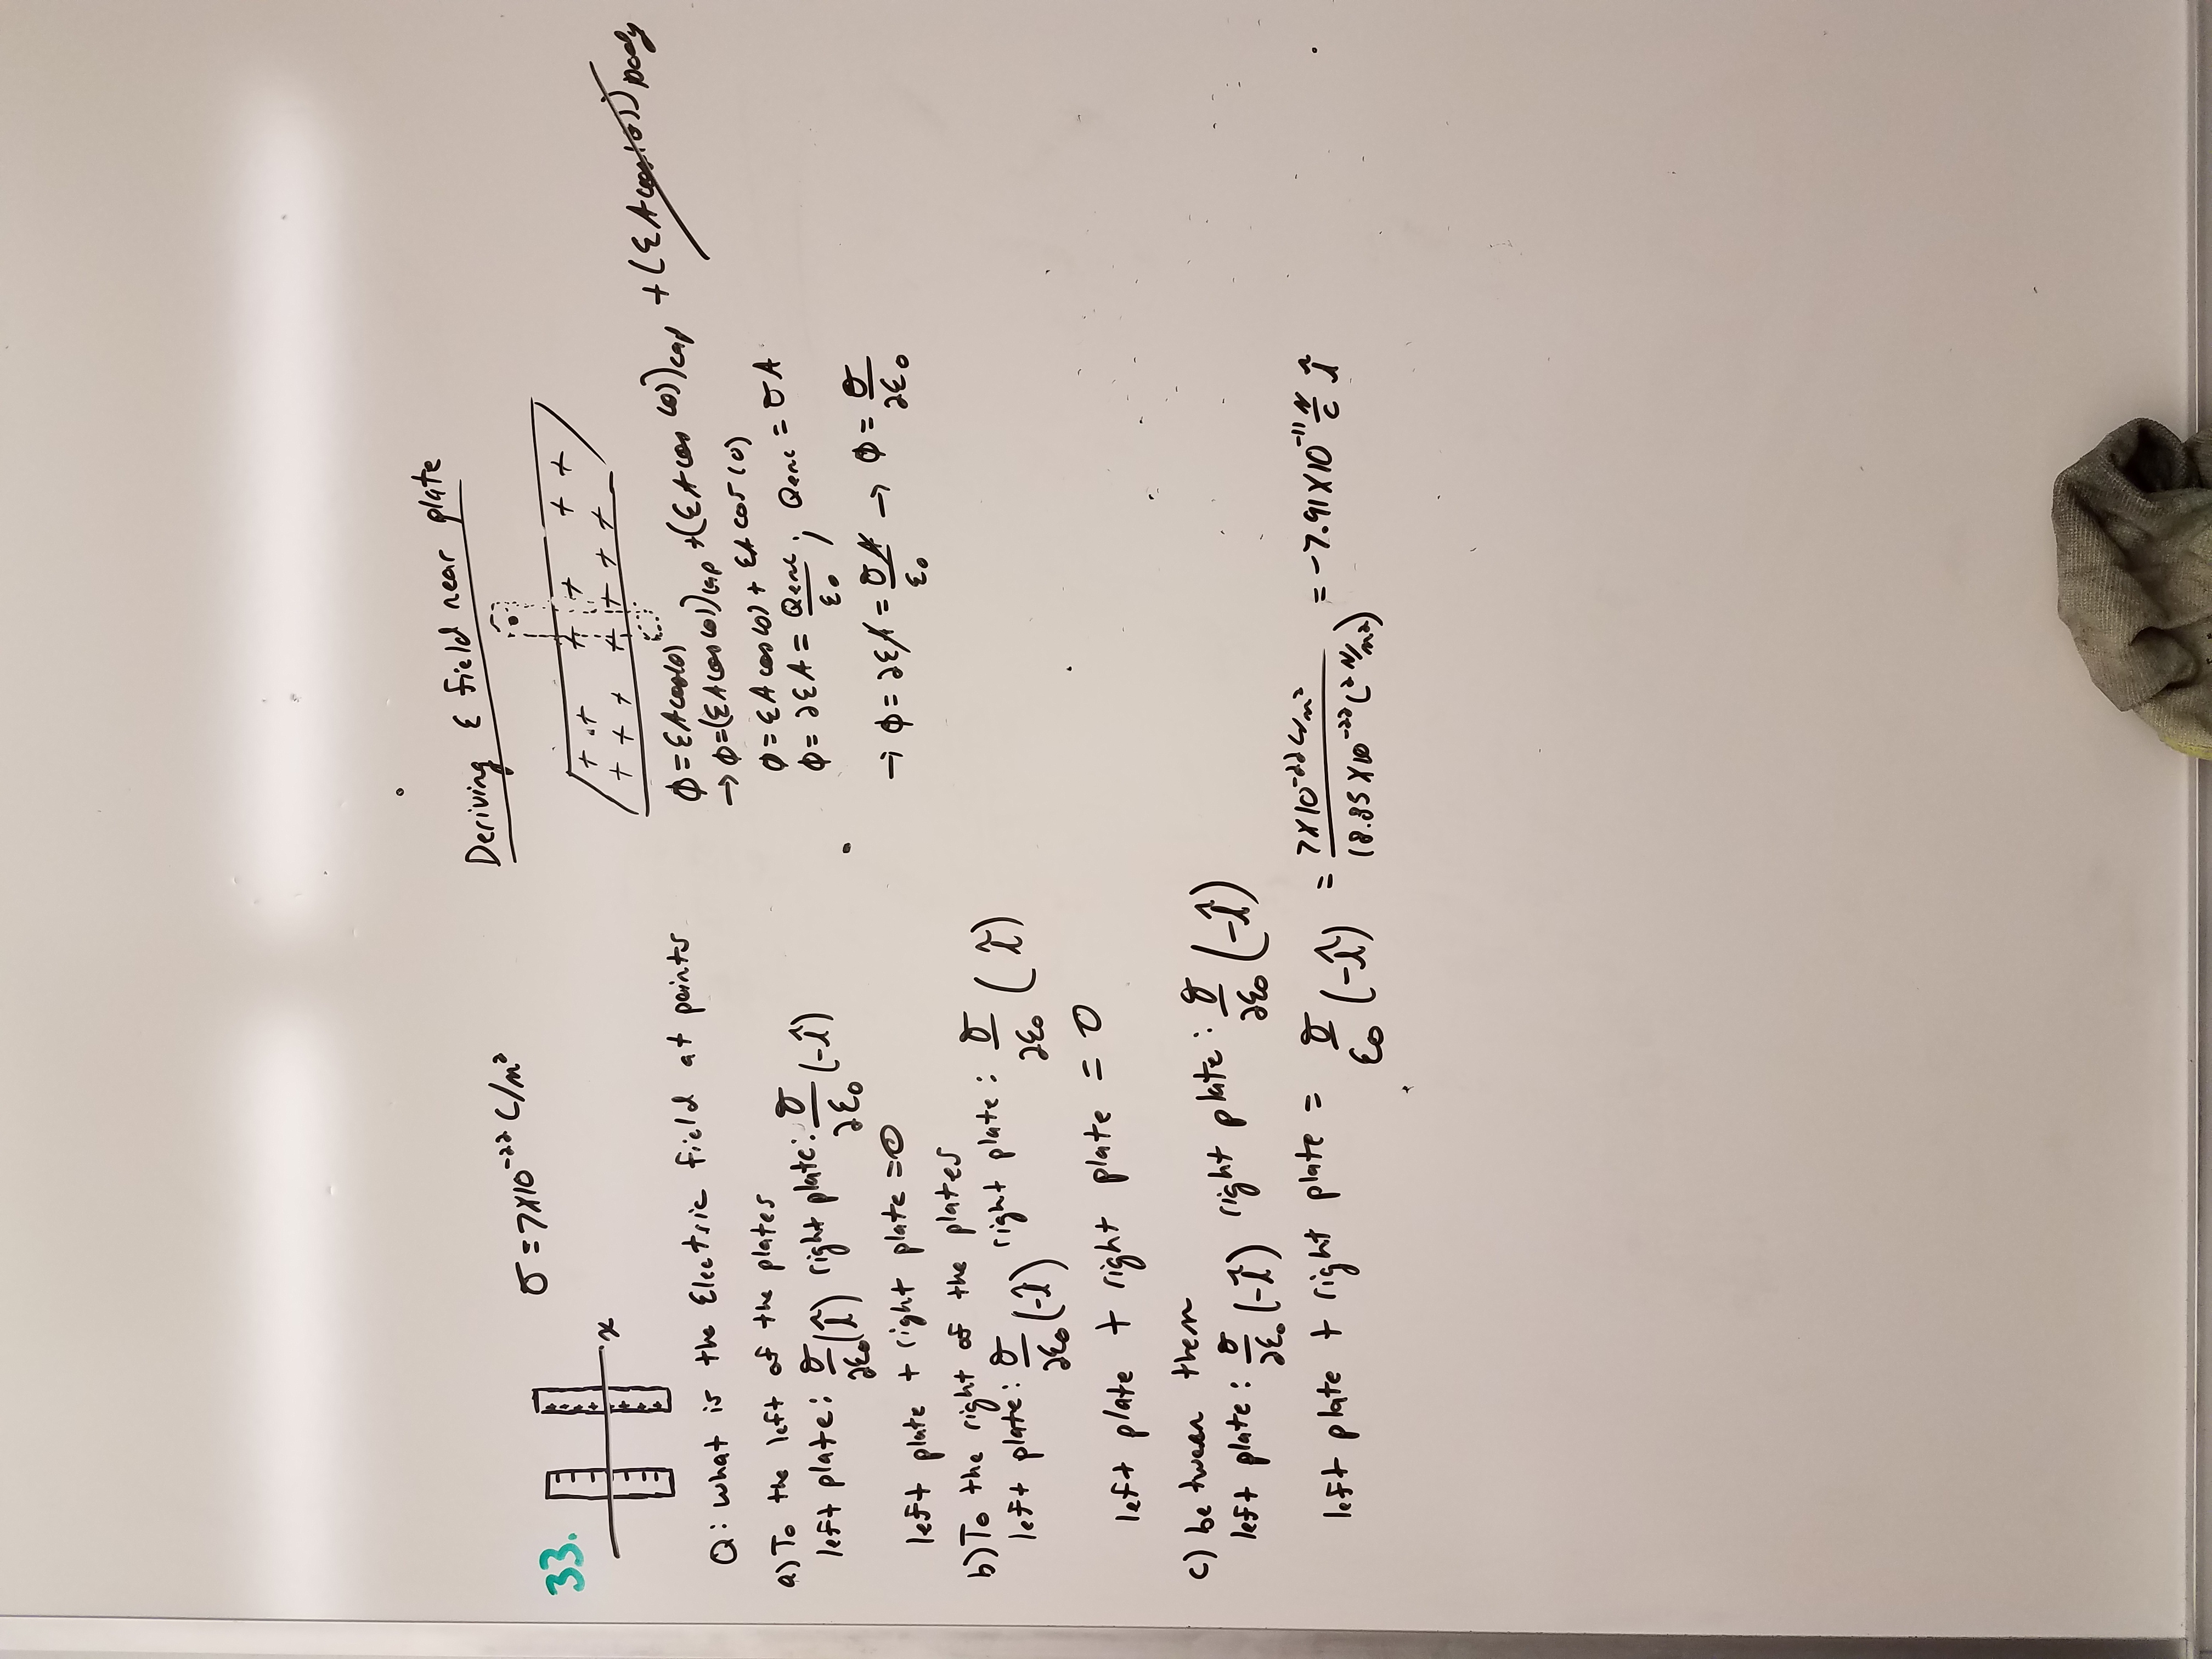 33.
σ = 7X10⁻²² C/m²
x
Q: what is the Electric field at points
a) To the left of the plates
left plate: σ/2ε₀ (î) right plate: σ/2ε₀ (-î)
left plate + right plate = 0
b) To the right of the plates
left plate: σ/2ε₀ (-î) right plate: σ/2ε₀ (î)
left plate + right plate = 0
c) between them
left plate: σ/2ε₀ (-î) right plate: σ/2ε₀ (-î)
left plate + right plate = σ/ε₀ (-î) = 7X10⁻²² C/m² / = -7.91X10⁻¹¹ N/C î
Deriving E field near plate
+ + + + + +
+ + + + + + +
ϕ = EAcos(0)
→ ϕ = (EAcos(0))cap + (EAcos(0))cap + (EAcos(0))Body
ϕ = EAcos(0) + EAcos(0)
ϕ = 2EA = Qenc/ε₀ ; Qenc = σA
→ ϕ = 2EA = σA/ε₀ → ϕ = σ/2ε₀